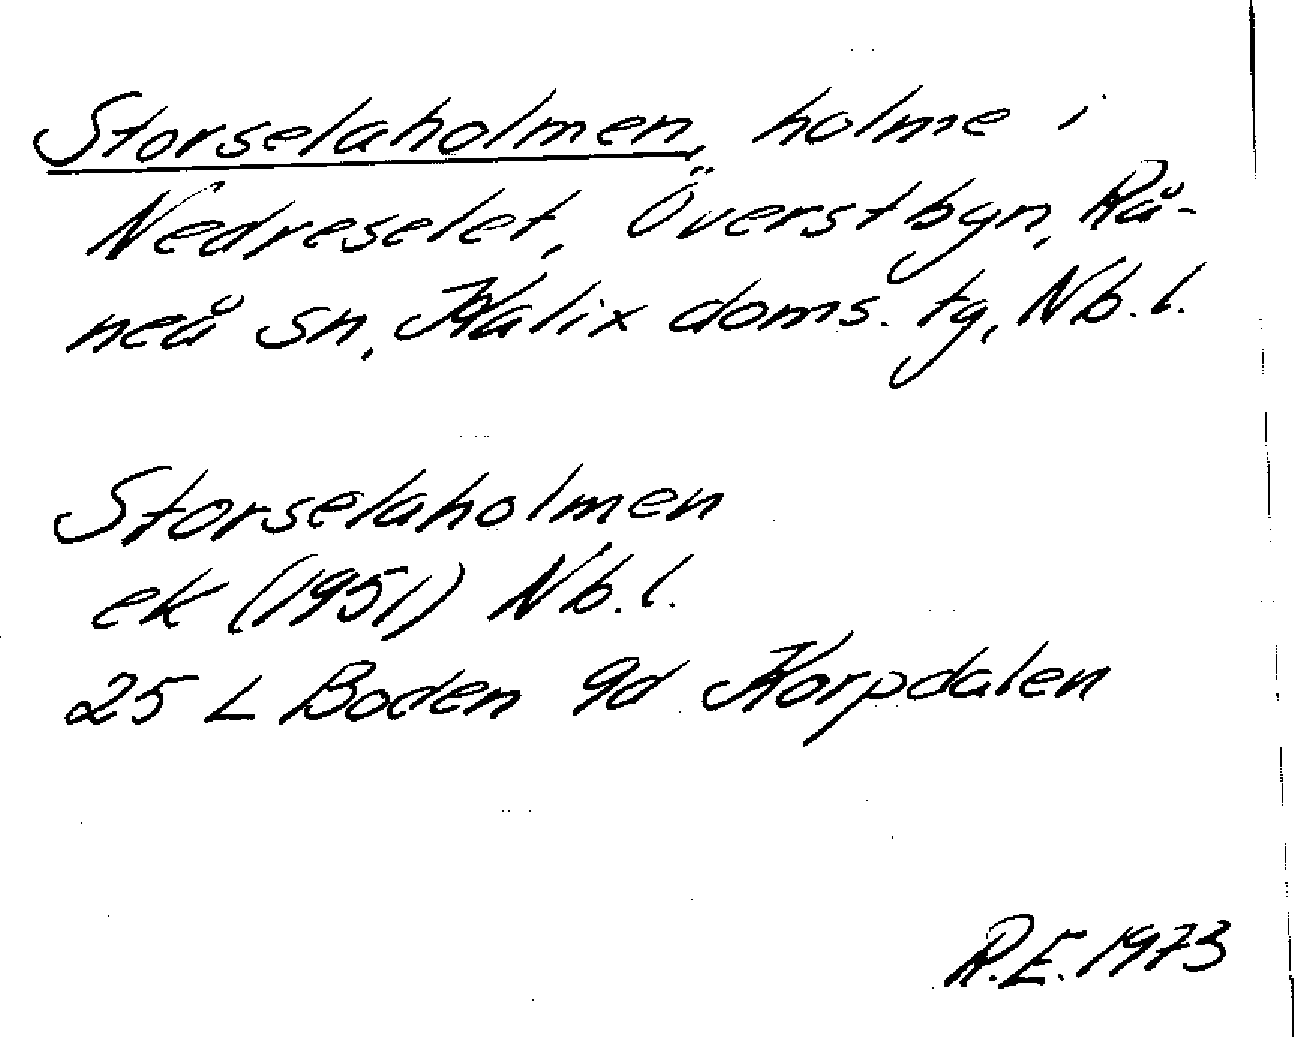 Storselaholmen, holme i
Nedreselet, Överstbyn, Rå-
neå sn, Kalix doms. tg, Nb.l.
Storselaholmen
ek (1951) Nb.l.
25 L Boden 9d Korpdalen
R.E. 1973